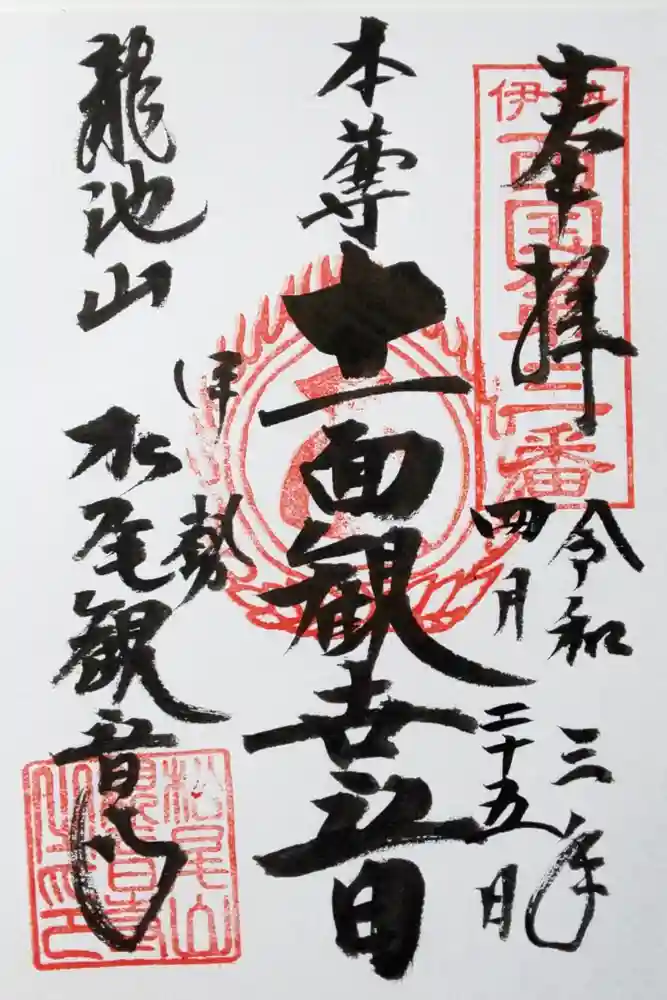 奉拝
伊勢
西国第三番
令和三年
四月二十五日
本尊
十一面観世音
伊勢
龍池山
松尾観音寺
松尾山
観音寺
之印